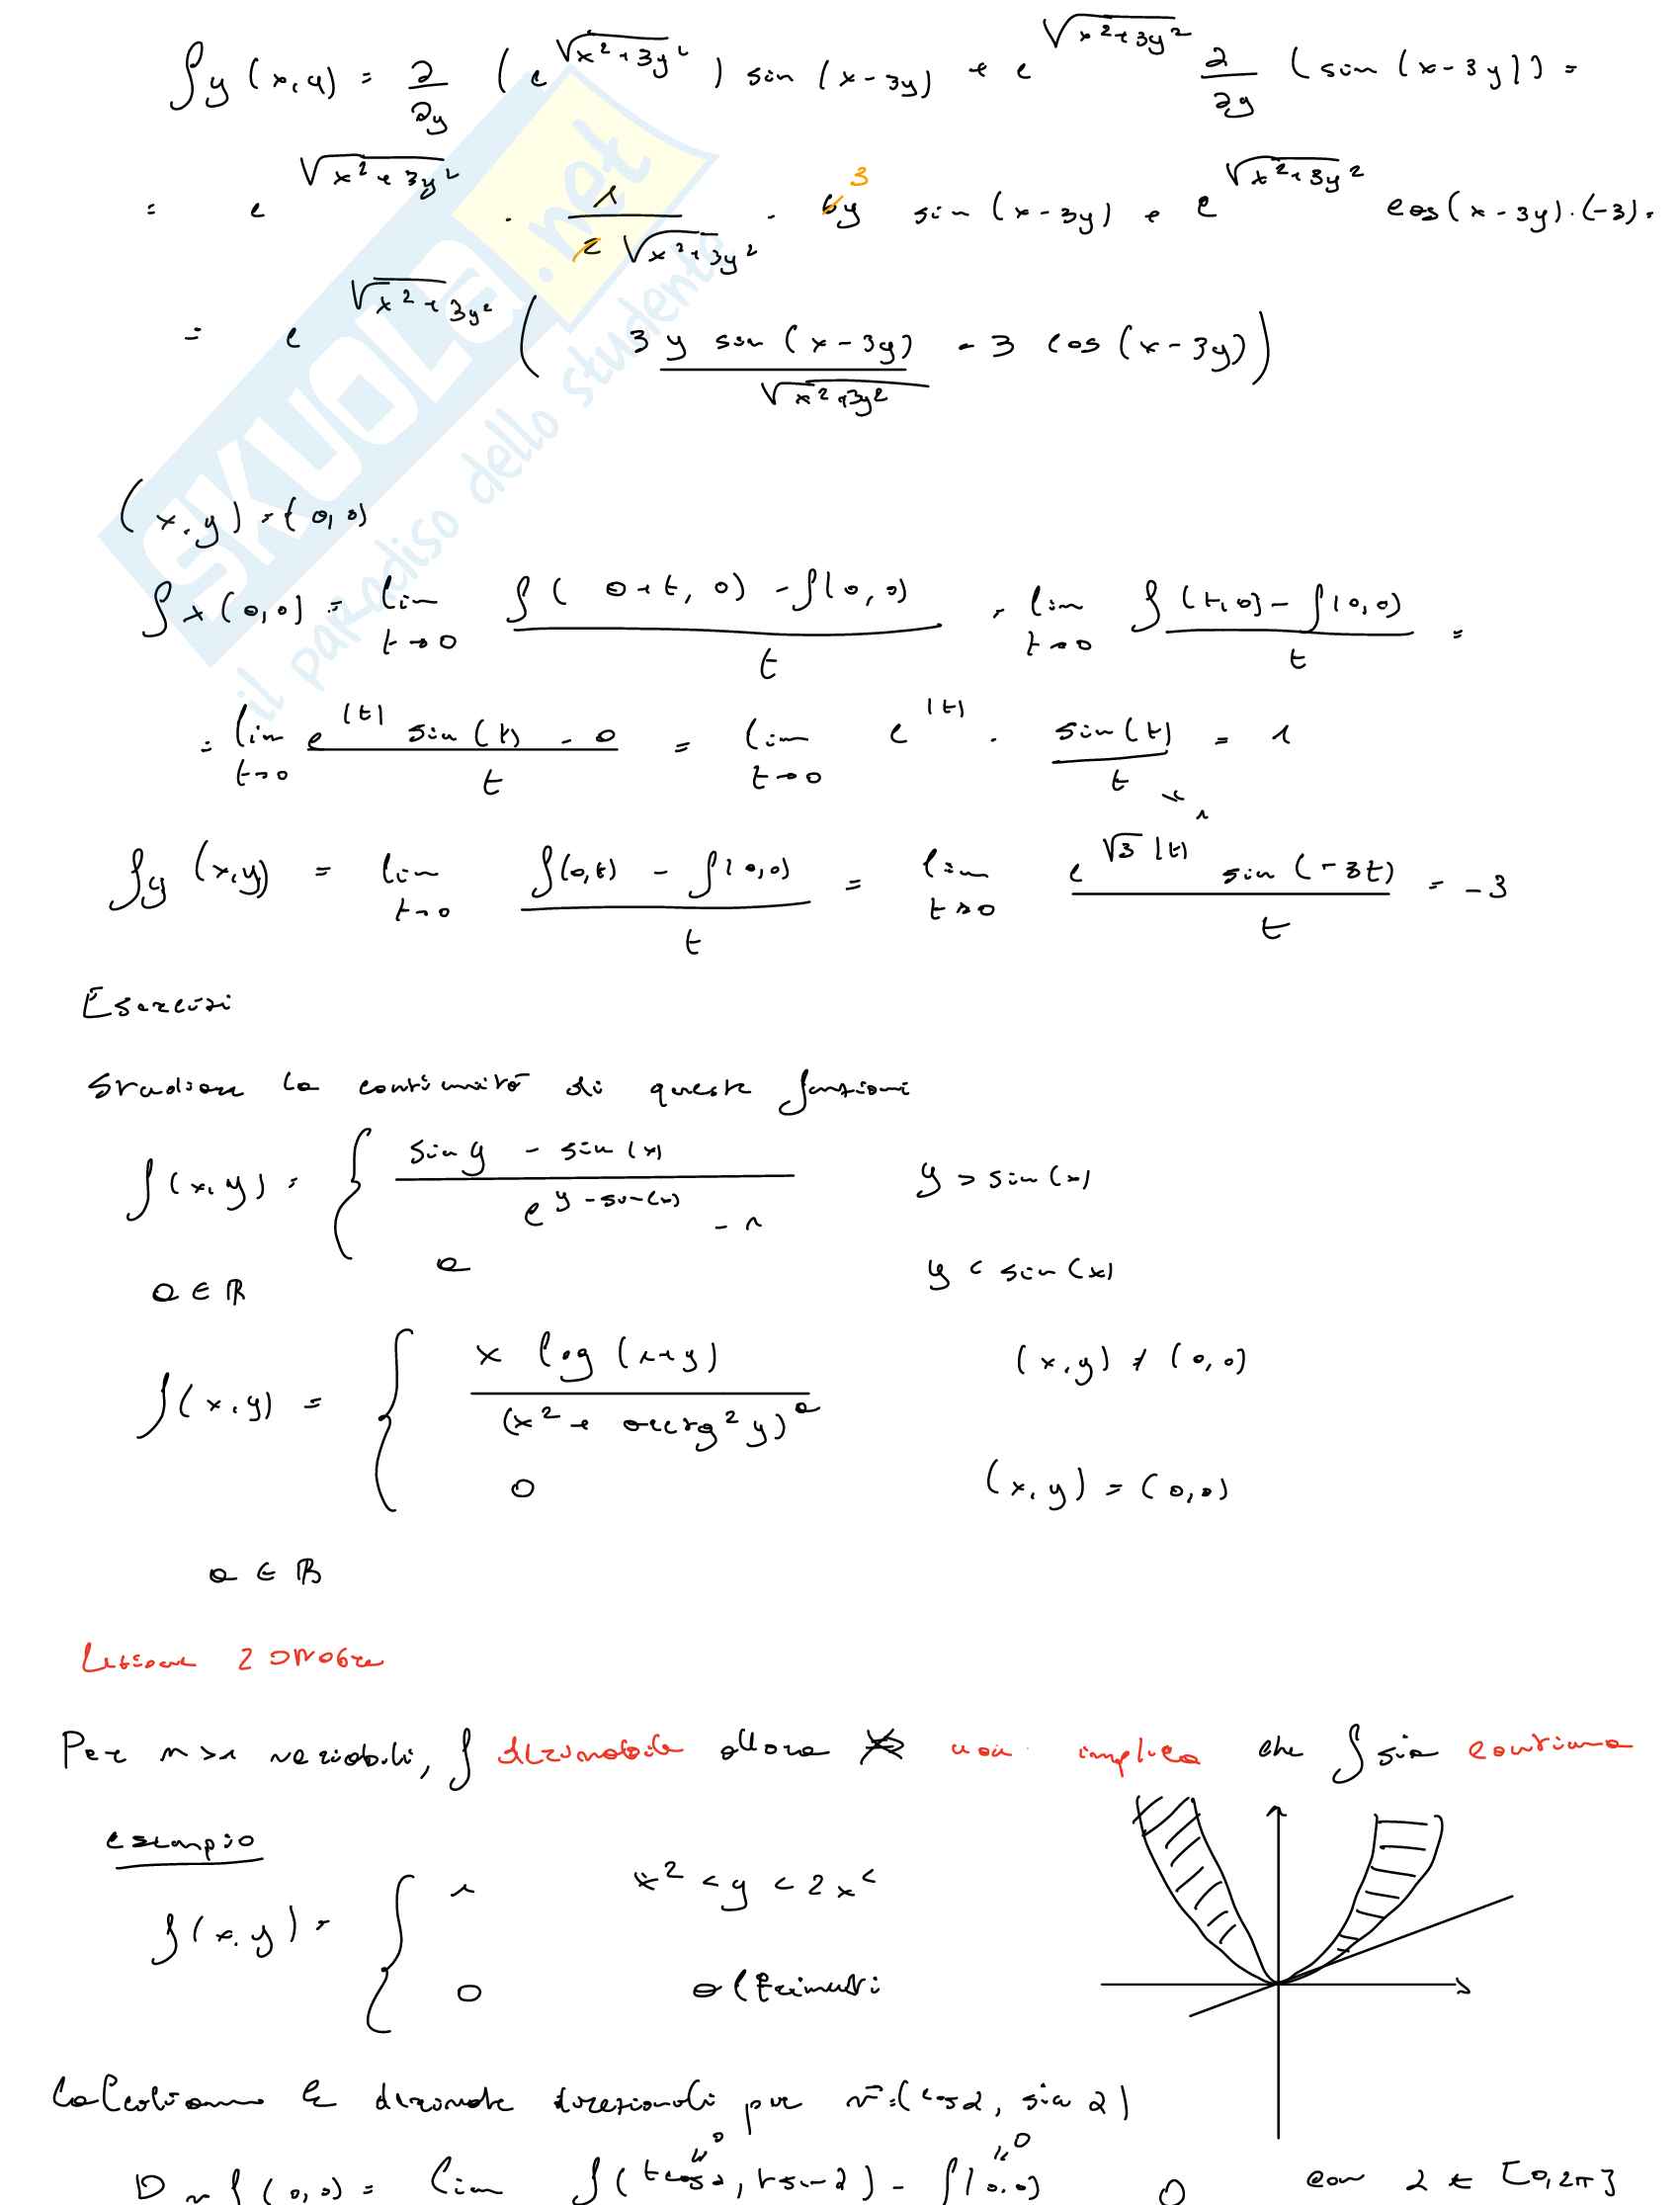 fy (x,y) = ∂/∂y (e^√(x²+3y²)) sin (x-3y) + e^√(x²+3y²) ∂/∂y (sin (x-3y)) =
= e^√(x²+3y²) · 1/(2√(x²+3y²)) · 6y 3 sin (x-3y) + e^√(x²+3y²) cos(x-3y)·(-3) =
= e^√(x²+3y²) (3y sin(x-3y)/√(x²+3y²) - 3 cos(x-3y))
(x,y) = (0,0)
fx(0,0) = lim t→0 (f(0+t, 0) - f(0,0))/t = lim t→0 (f(t,0) - f(0,0))/t =
= lim t→0 (e^|t| sin(t) - 0)/t = lim t→0 e^|t| · sin(t)/t = 1
↘ 1
fy (x,y) = lim t→0 (f(0,t) - f(0,0))/t = lim t→0 (e^(√3 |t|) sin(-3t))/t = -3
Esercizi
Studiare la continuità di queste funzioni
f(x,y) = { (sin y - sin(x))/(e^(y-sin(x)) - 1) y > sin(x)
a y < sin(x)
a ∈ ℝ
f(x,y) = { x log(1+y)/(x² + arctg² y)^a (x,y) ≠ (0,0)
0 (x,y) = (0,0)
a ∈ ℝ
Lezione 2 ottobre
Per n>1 variabili, f derivabile allora non implica che f sia continua
esempio
f(x,y) = { 1 x² < y < 2x²
0 altrimenti
Calcoliamo le derivate direzionali per v = (cos α, sin α)
D v f(0,0) = lim f(t cos α, t sin α) - f(0,0) 0 con α ∈ [0,2π]
"0 "0
SKUOLA.net
il paradiso dello studente